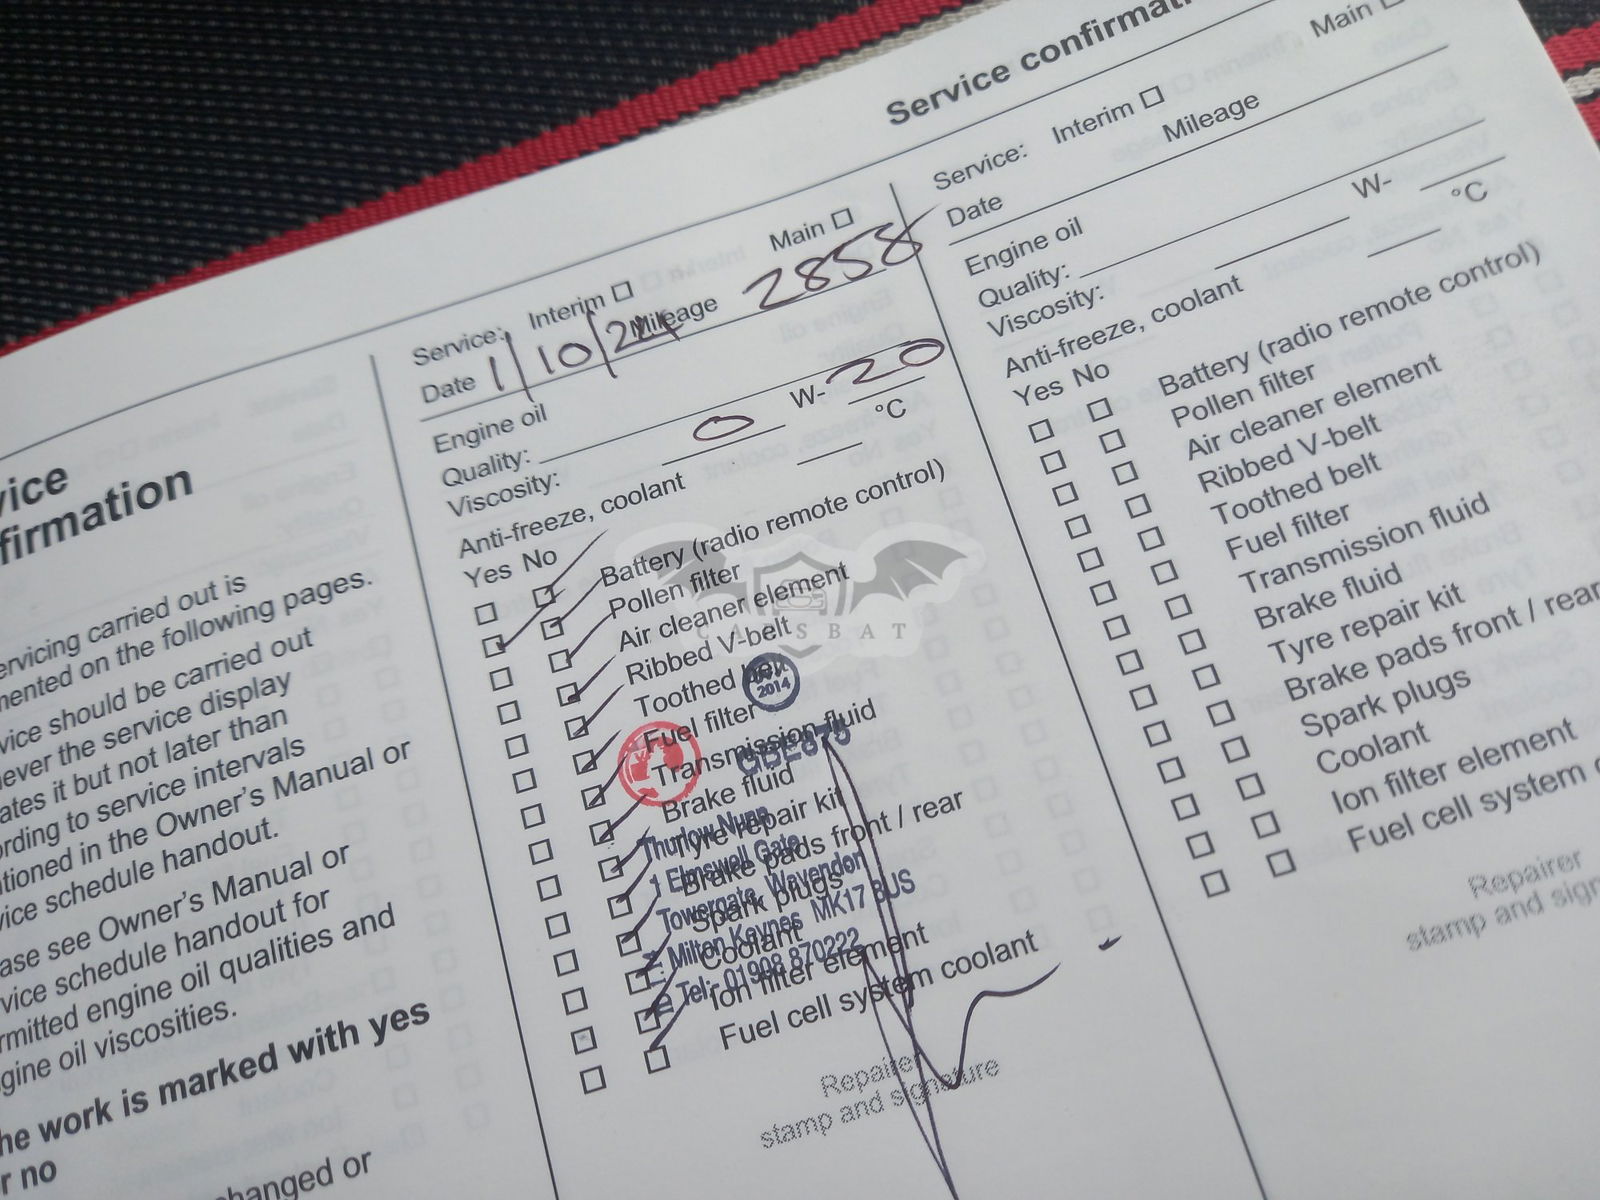 vice
firmation
ervicing carried out is
mented on the following pages.
vice should be carried out
ever the service display
ates it but not later than
ording to service intervals
tioned in the Owner's Manual or
vice schedule handout.
ase see Owner's Manual or
vice schedule handout for
rmitted engine oil qualities and
gine oil viscosities.
he work is marked with yes
r no
changed or
Service: Interim Main
Date 1/10/24 Mileage 2858
Engine oil
Quality:
Viscosity: 0 W- 20
Anti-freeze, coolant °C
Yes No
Battery (radio remote control)
Pollen filter
Air cleaner element
Ribbed V-belt
Toothed belt
Fuel filter
Transmission fluid
Brake fluid
Tyre repair kit
Brake pads front / rear
Spark plugs
Coolant
Ion filter element
Fuel cell system coolant
CARSBAT
2014
GBE875
Thurlow Nunn
1 Elmswell Gate
Towergate, Wavendon
Milton Keynes MK17 8US
Tel:- 01908 870222
Repairer
stamp and signature
Service confirmati
Service: Interim Main
Date Mileage
Engine oil
Quality:
Viscosity: W-
Anti-freeze, coolant °C
Yes No
Battery (radio remote control)
Pollen filter
Air cleaner element
Ribbed V-belt
Toothed belt
Fuel filter
Transmission fluid
Brake fluid
Tyre repair kit
Brake pads front / rear
Spark plugs
Coolant
Ion filter element
Fuel cell system c
Repairer
stamp and sign